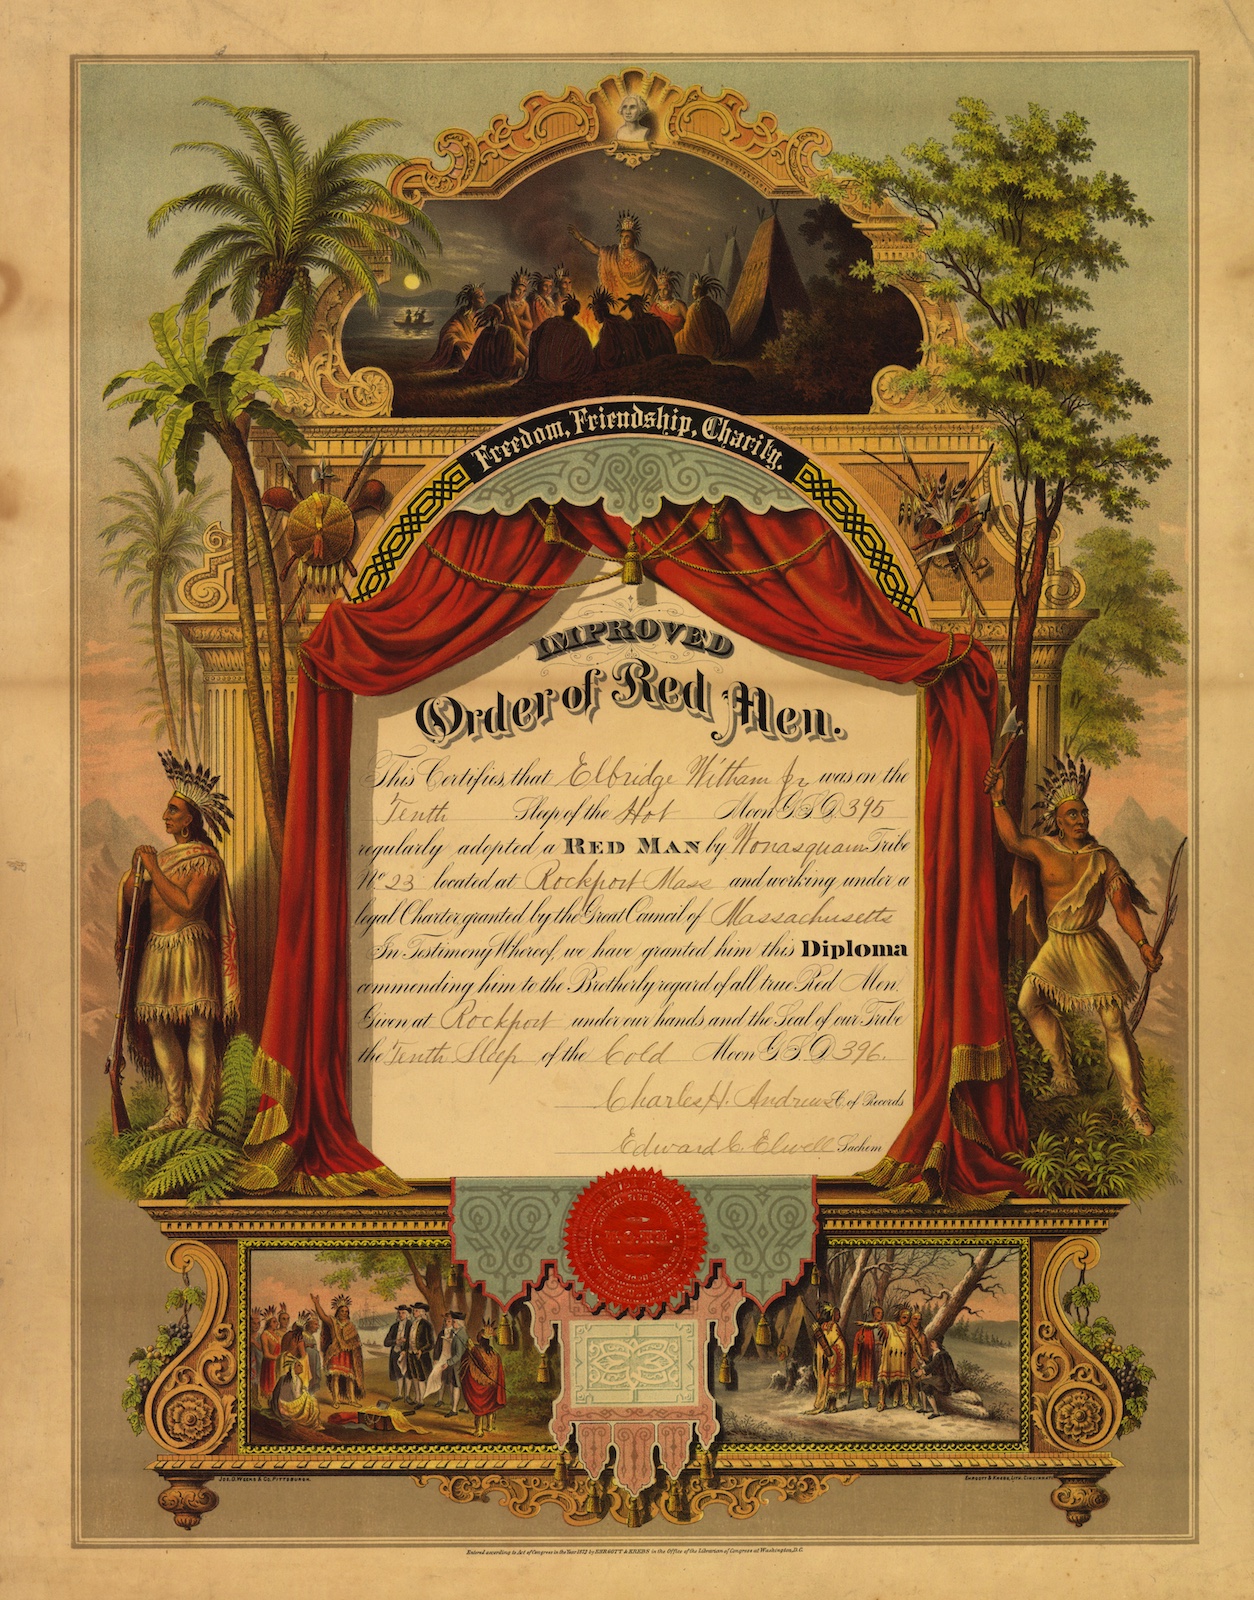 Freedom, Friendship, Charity.
IMPROVED
Order of Red Men.
This Certifies, that Elbridge Witham Jr was on the
Tenth Sleep of the Hot Moon G.S.D. 395
regularly adopted a RED MAN by Wonasquam Tribe
No 23 located at Rockport Mass and working under a
legal Charter granted by the Great Council of Massachusetts
In Testimony Whereof, we have granted him this Diploma
commending him to the Brotherly regard of all true Red Men.
Given at Rockport under our hands and the Seal of our Tribe
the Tenth Sleep of the Cold Moon G.S.D. 396.
Charles H. Andrews C. of Records
Edward C. Elwell Sachem
JOS. D. WEEKS & CO. PITTSBURGH.
EHRGOTT & KREBS, LITH. CINCINNATI
Entered according to Act of Congress in the Year 1872 by EHRGOTT & KREBS in the Office of the Librarian of Congress at Washington, D.C.